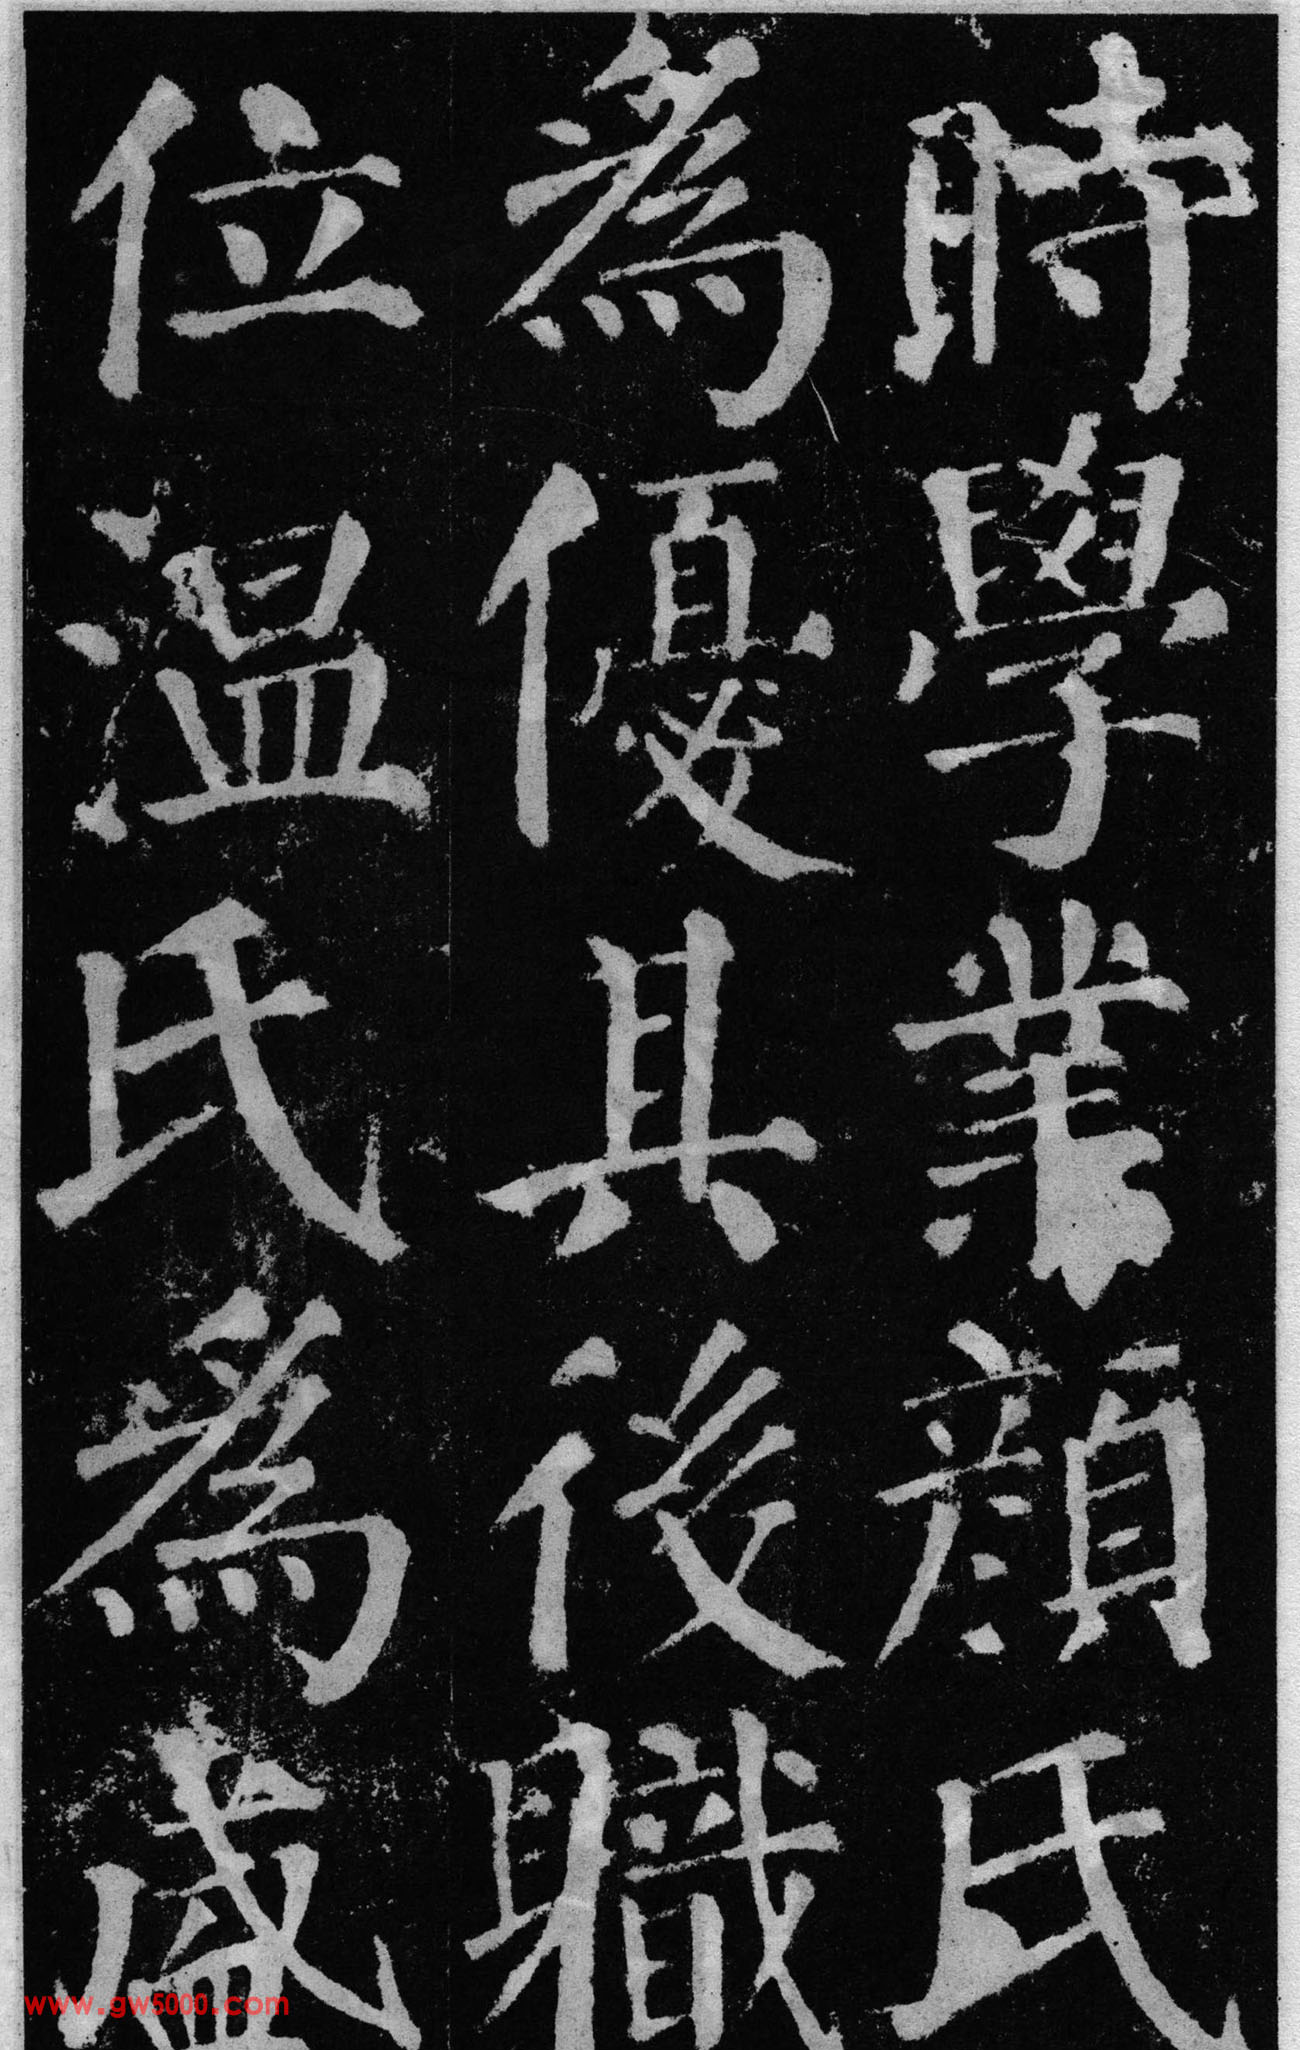 時學業顏氏
為優其後職
位溫氏為盛
www.gw5000.com